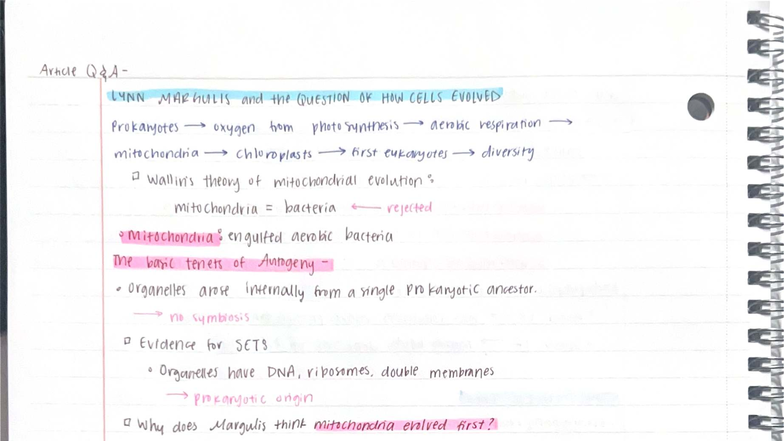 Article Q&A-
LYNN MARGULIS and the QUESTION OF HOW CELLS EVOLVED
Prokaryotes → oxygen from photosynthesis → aerobic respiration →
mitochondria → chloroplasts → first eukaryotes → diversity
Wallin's theory of mitochondrial evolution:
mitochondria = bacteria ← rejected
• Mitochondria: engulfed aerobic bacteria
The basic tenets of Autogeny -
• Organelles arose internally from a single prokaryotic ancestor.
→ no symbiosis
Evidence for SETS
• Organelles have DNA, ribosomes, double membranes
→ prokaryotic origin
Why does Margulis think mitochondria evolved first?